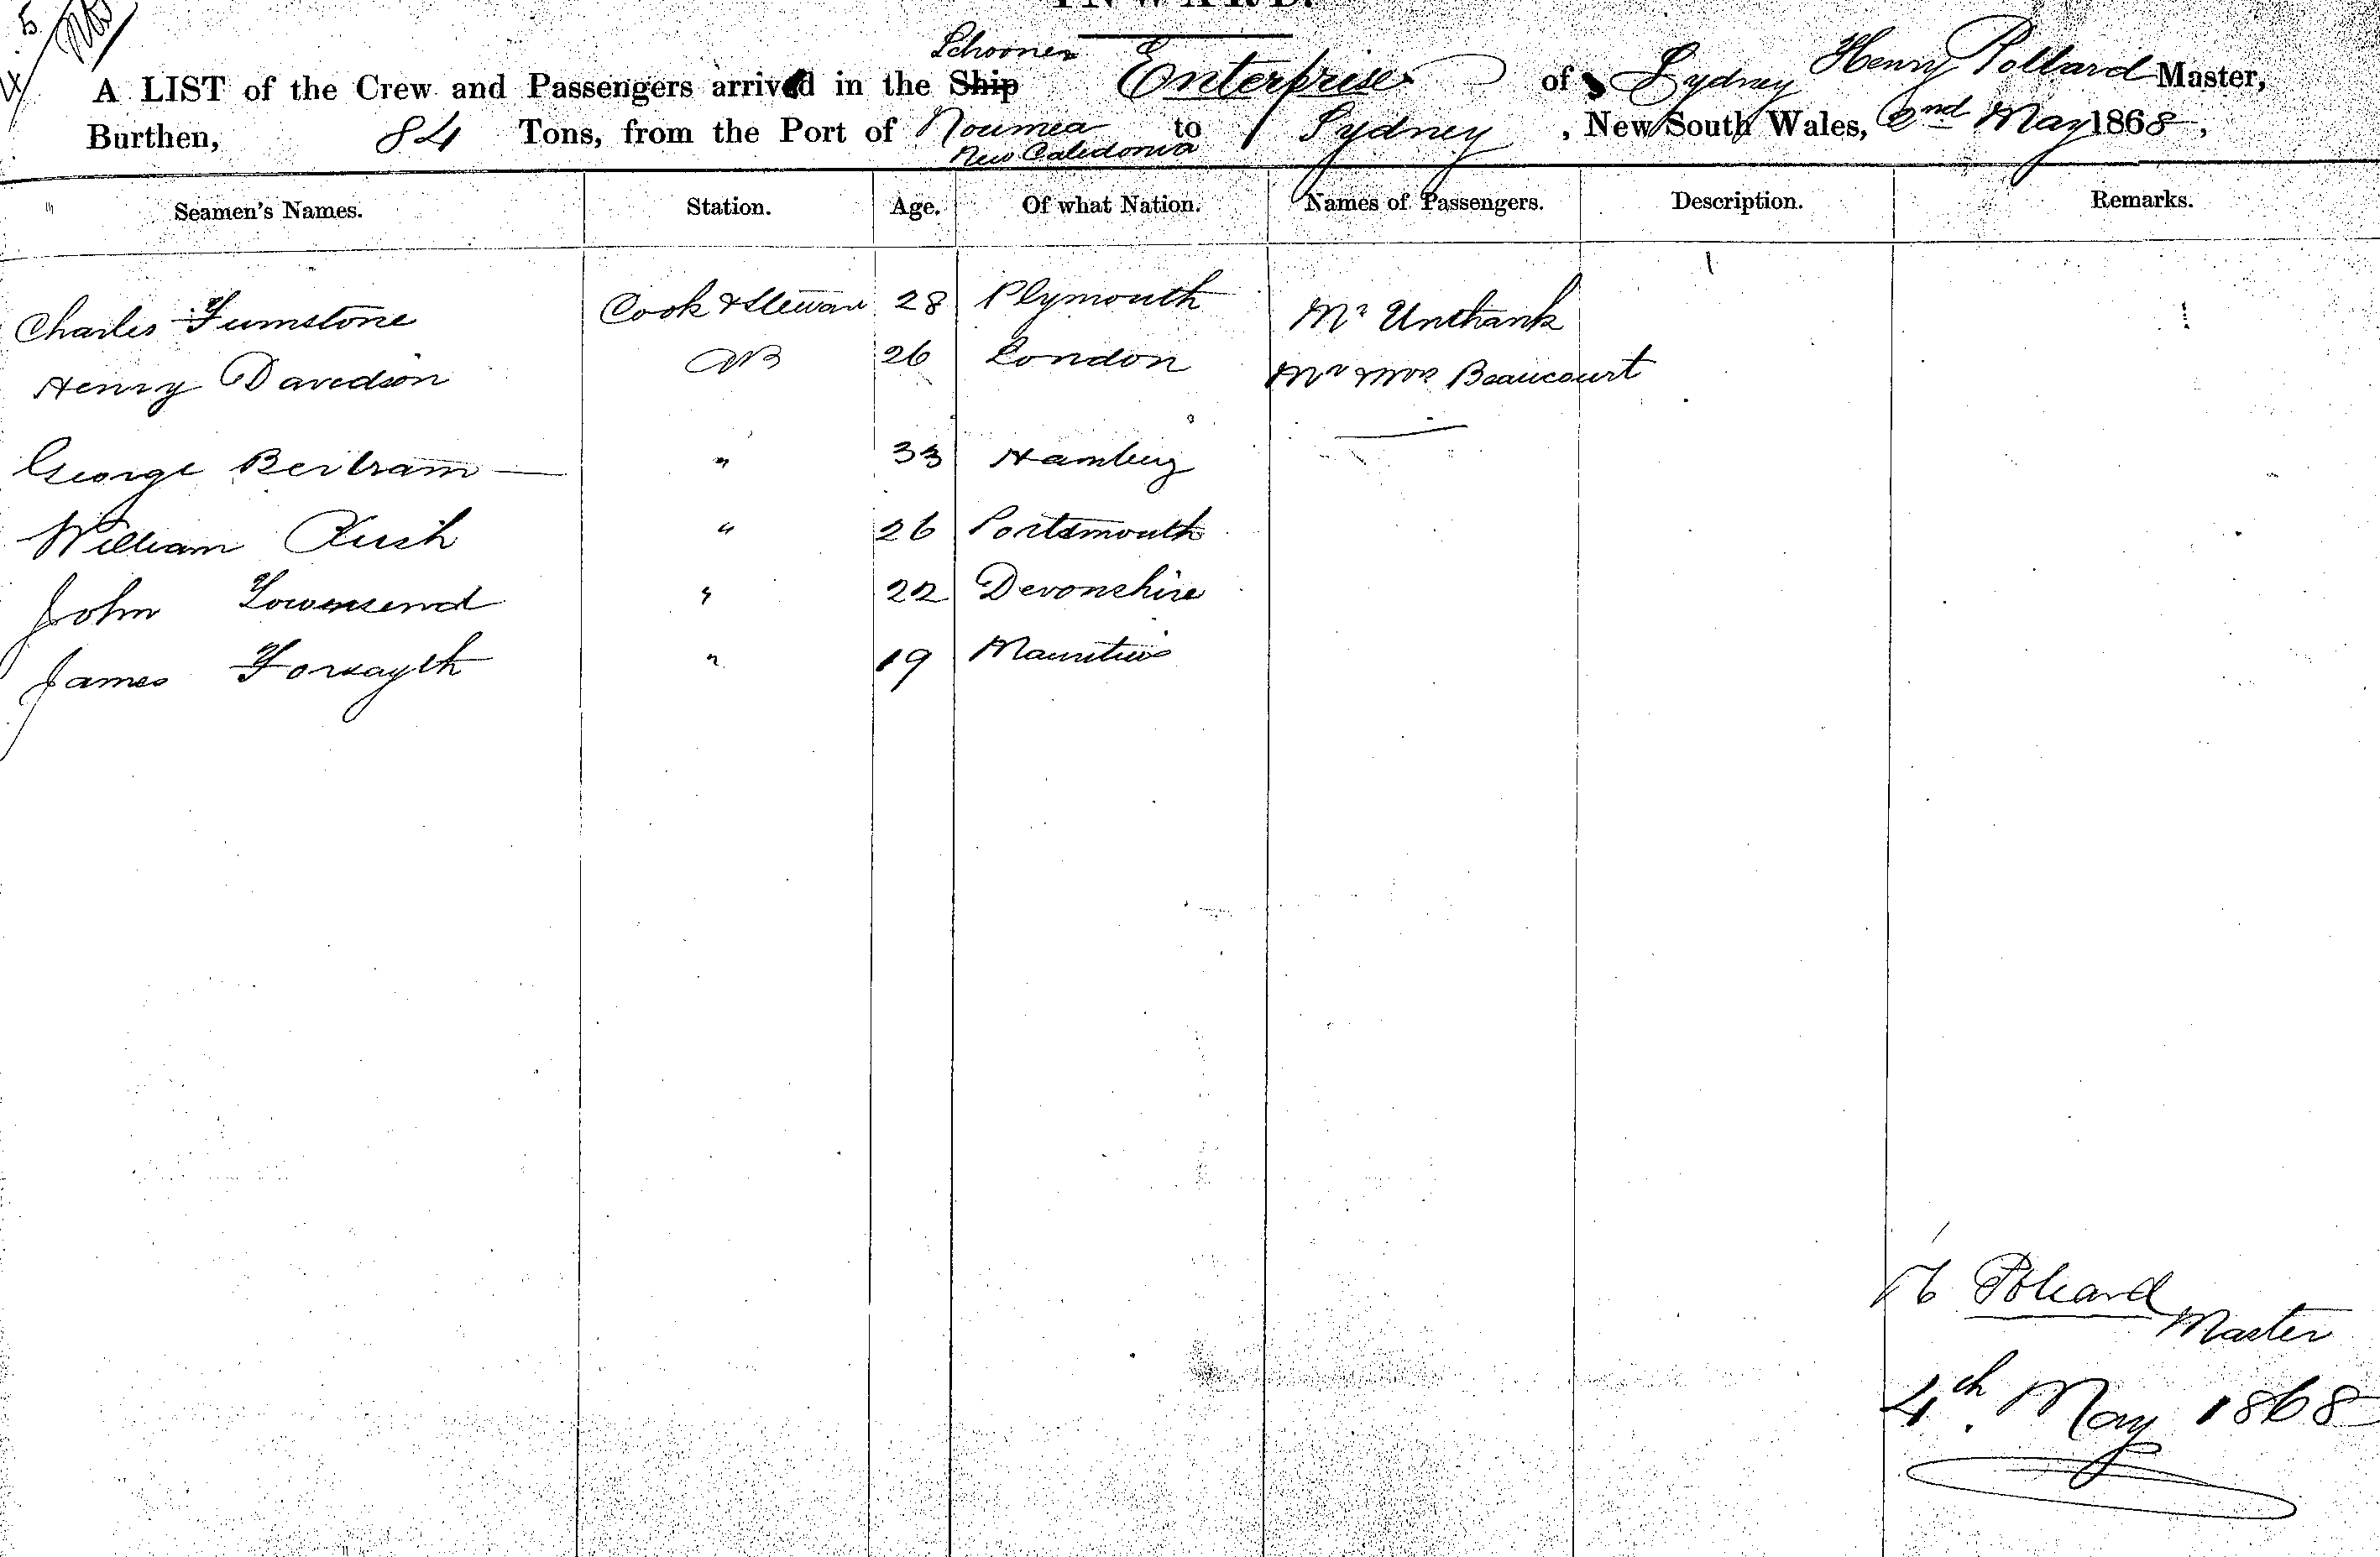 INWARD.
Schooner
A LIST of the Crew and Passengers arrived in the Ship Enterprise of Sydney Henry Pollard Master,
Burthen, 84 Tons, from the Port of Noumea to Sydney, New South Wales, 2nd May 1868,
New Caledonia
Seamen's Names. Station. Age. Of what Nation. Names of Passengers. Description. Remarks.
Charles Cook & Steward 28 Plymouth Mr Unthank
Henry Davedson AB 26 London Mr & Mrs Beaucourt
George Bertram " 33 Hamburg
William Rush " 26 Portsmouth
John Townsend " 22 Devonshire
James Forsayth " 19 Mauritius
H Pollard
Master
4th May 1868